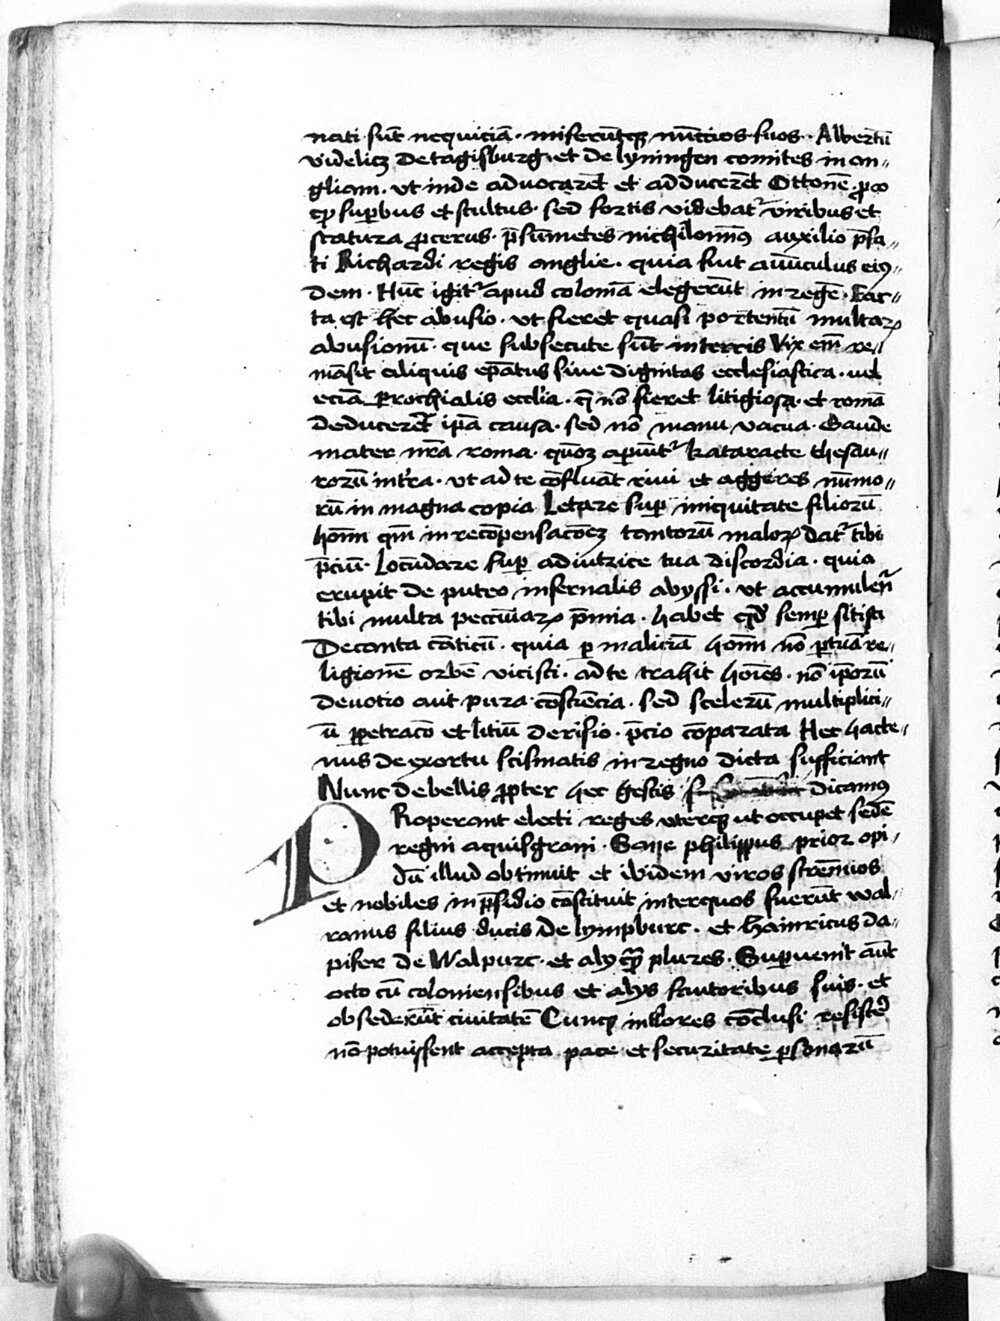 nati sūt nequiciā · miserūtqꝫ nūccios suos · Albertū
videlicꝫ de tagisburg et de lyningen comites in an〃
gliam · ut inde advocarēt et adducerēt Ottonē · ꝓ eo
ꝙ suꝑbus et stultus · sed fortis videbatᷣ viribus et
statura ꝓcerus · p̄sumētes nichilomīꝰ auxilio p̄fa〃
ti Richardi regis anglie · quia fuit avūculus eiꝰ〃
dem · Hūc igitᷣ apud coloniā elegerūt in regē · Fac〃
ta est hec abusio · ut fieret quasi portentū multaꝝ
abusionū · que subsecute sūt in terris Vix em̄ re〃
māsit aliquis ep̄atus sive dignitas ecclesiastica · vel
eciā ꝑrochialis eccl̄ia · q̄ nō fieret litigiosa · et romā
deducerēt᷑ ip̄a causa · sed nō manu vacua · Gaude
mater nr̄a roma · qm̄ aꝑiūtᷣ kataracte thesau〃
rozū in tr̄a · ut ad te cōfluāt rivi et aggeres nūmo〃
rū in magna copia Letare suꝑ iniquitate filiorū
hoīm qm̄ in recōpensacōeꝫ tantorū maloꝝ datᷣ tibi
p̄ciū · Iocūdare suꝑ adiutrice tua discordia · quia
erupit de puteo infernalis abyssi · ut accumulēt᷑
tibi multa pecuniaꝝ p̄mia · habes qd̄ semꝑ sitisti
Decanta cāticū · quia ꝑ maliciā hoīm nō ꝑ tuā re〃
ligionē orbē vicisti · ad te trahit hoīes · nō ip̄orū
devotio aut pura cōsciēcia · sed scelerū multiplici〃
ū ꝑpetracō et litiū decisio · p̄cio cōparata Hec hacte〃
nus de exortu scismatis in regno dicta sufficiant
Nunc de bellis ꝓpter hec gestis dicamꝰ
PRoperant electi reges uterqꝫ ut occupet sedē
regni aquisgrani · Sane philippus prior opi〃
dū illud obtinuit et ibidem viros strēnuos
et nobiles in p̄sidio cōstituit inter quos fuerūt wal〃
ramus filius ducis de lympburc · et Hainricus da〃
pifer de Walpurc · et alij qꝫ plures · Suꝑvenit aūt
octo cū coloniensibus et alijs fautoribus suis · et
obsederūt civitatē Cumqꝫ illores cōclusi resistē
nō potuissent accepta pace et securitate ꝑsonarū